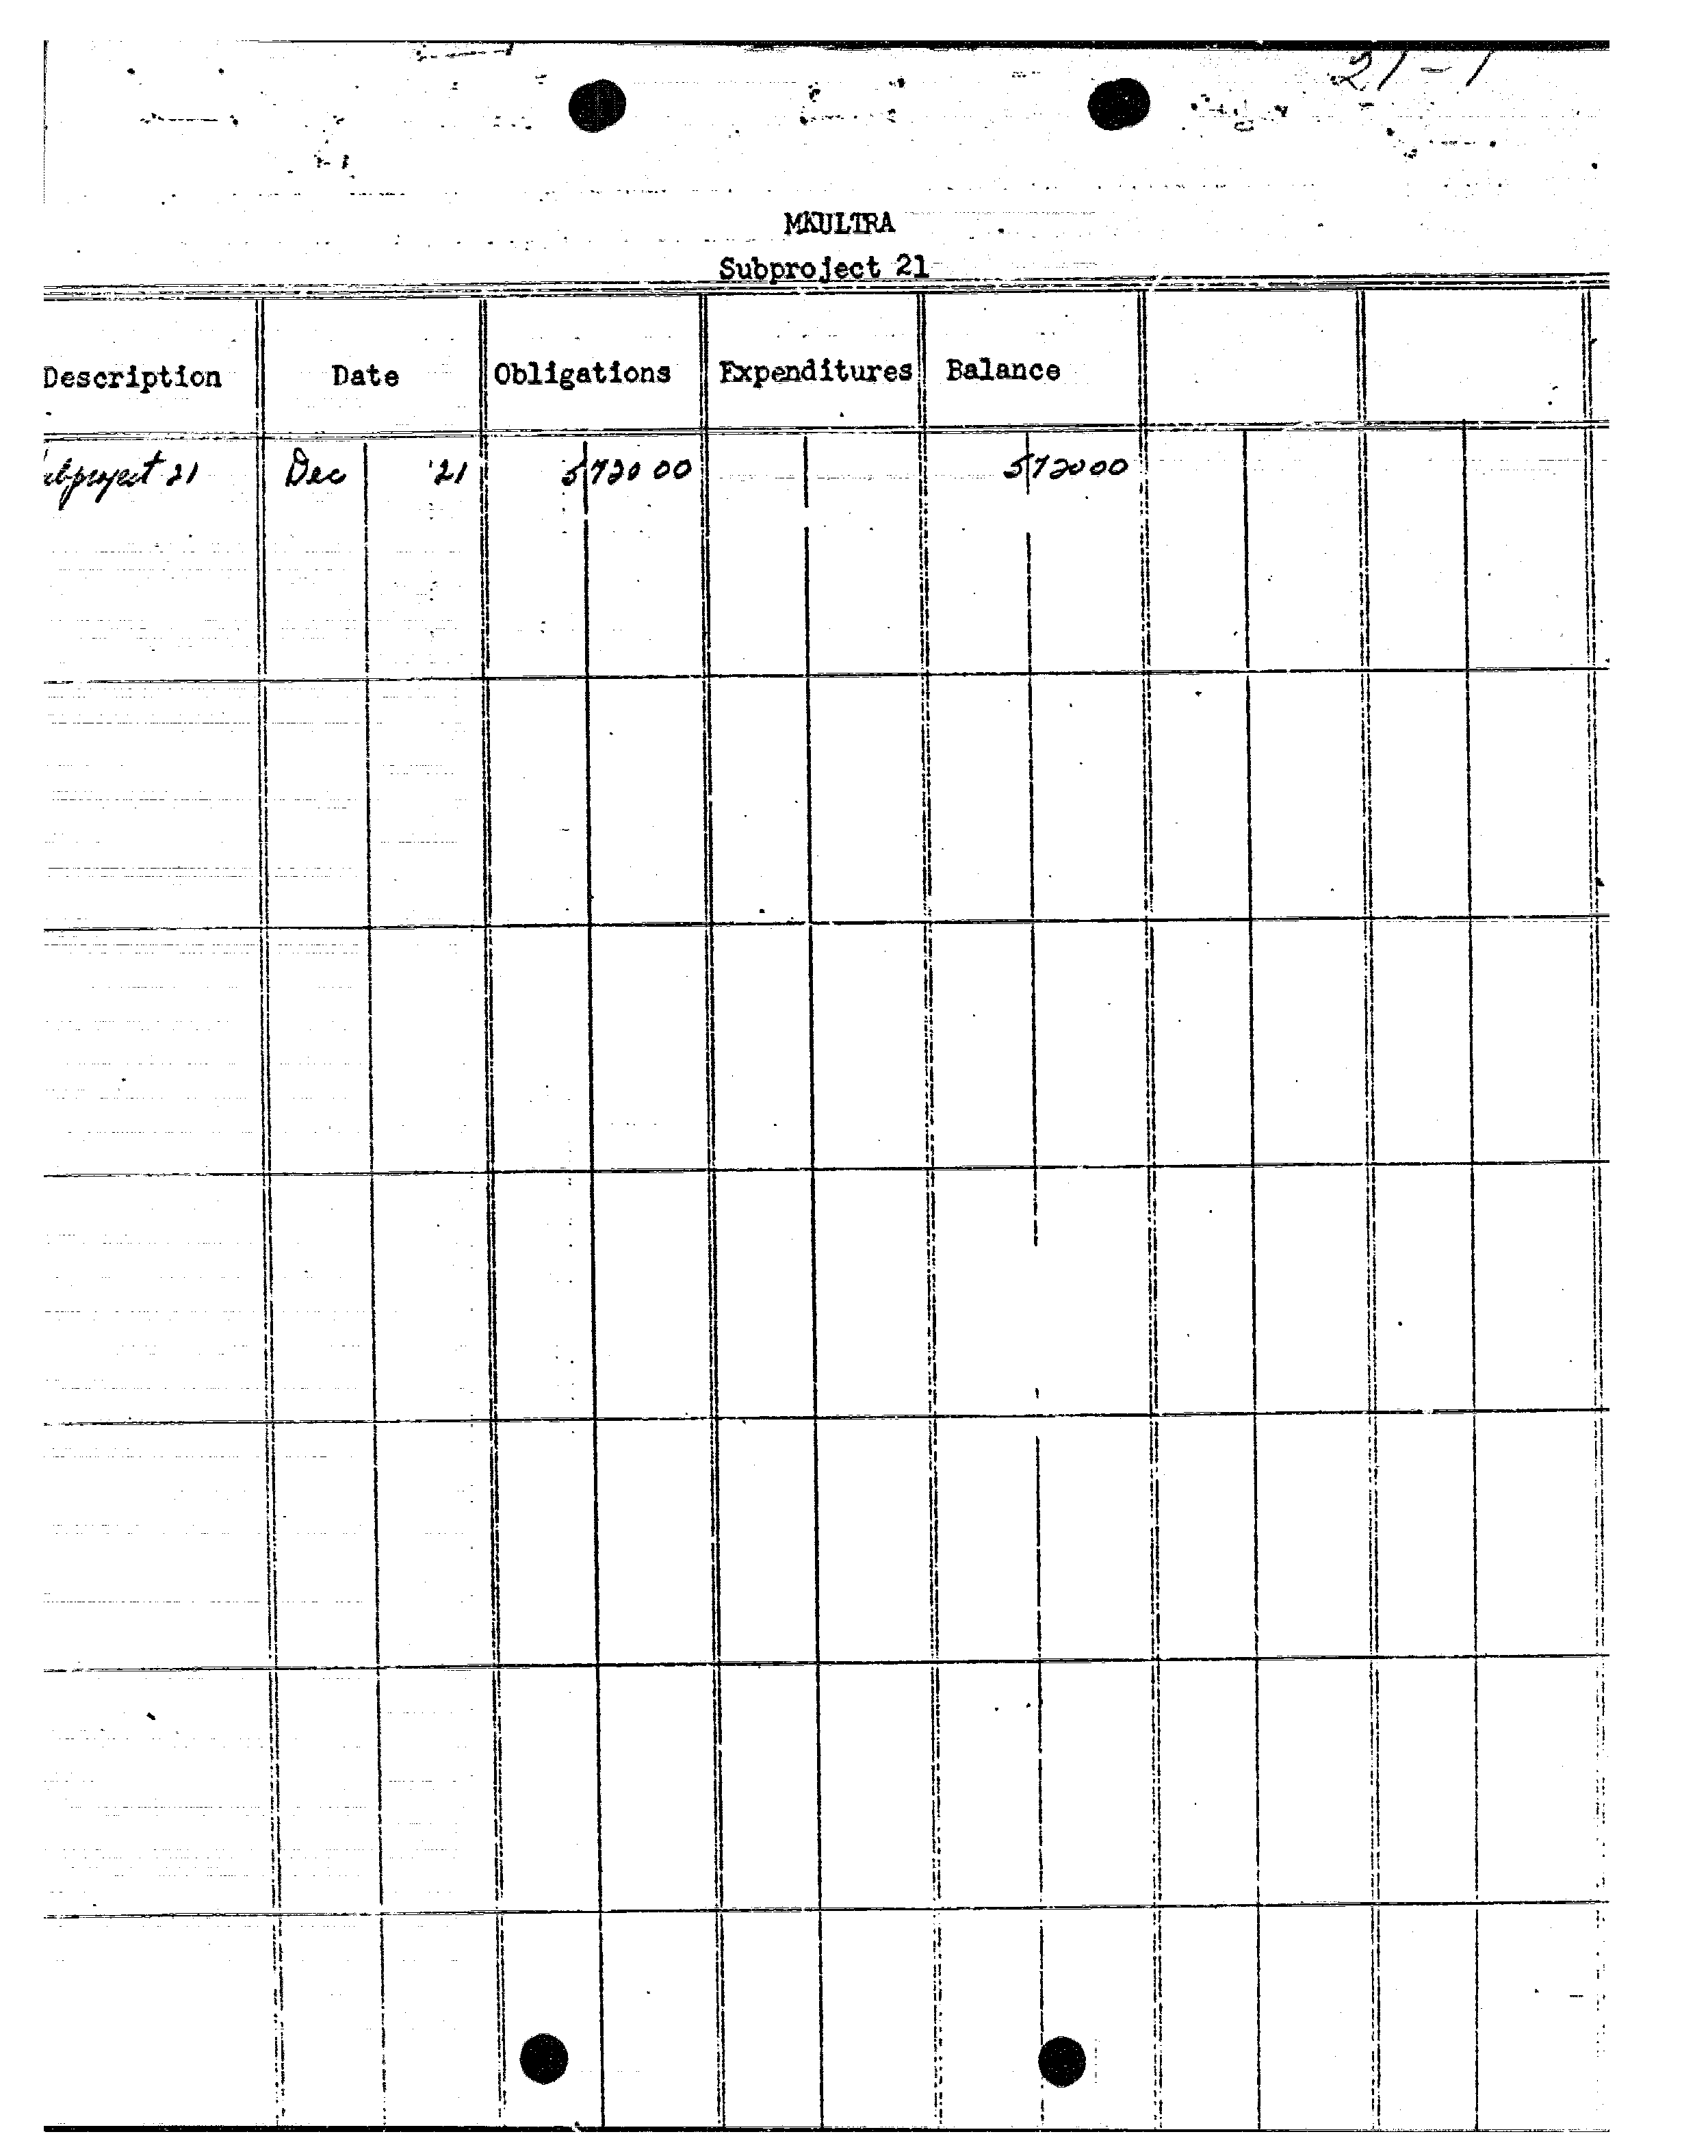 21-1
MKULTRA
Subproject 21
Description Date Obligations Expenditures Balance
ubproject 21 Dec '21 5720 00 5720 00